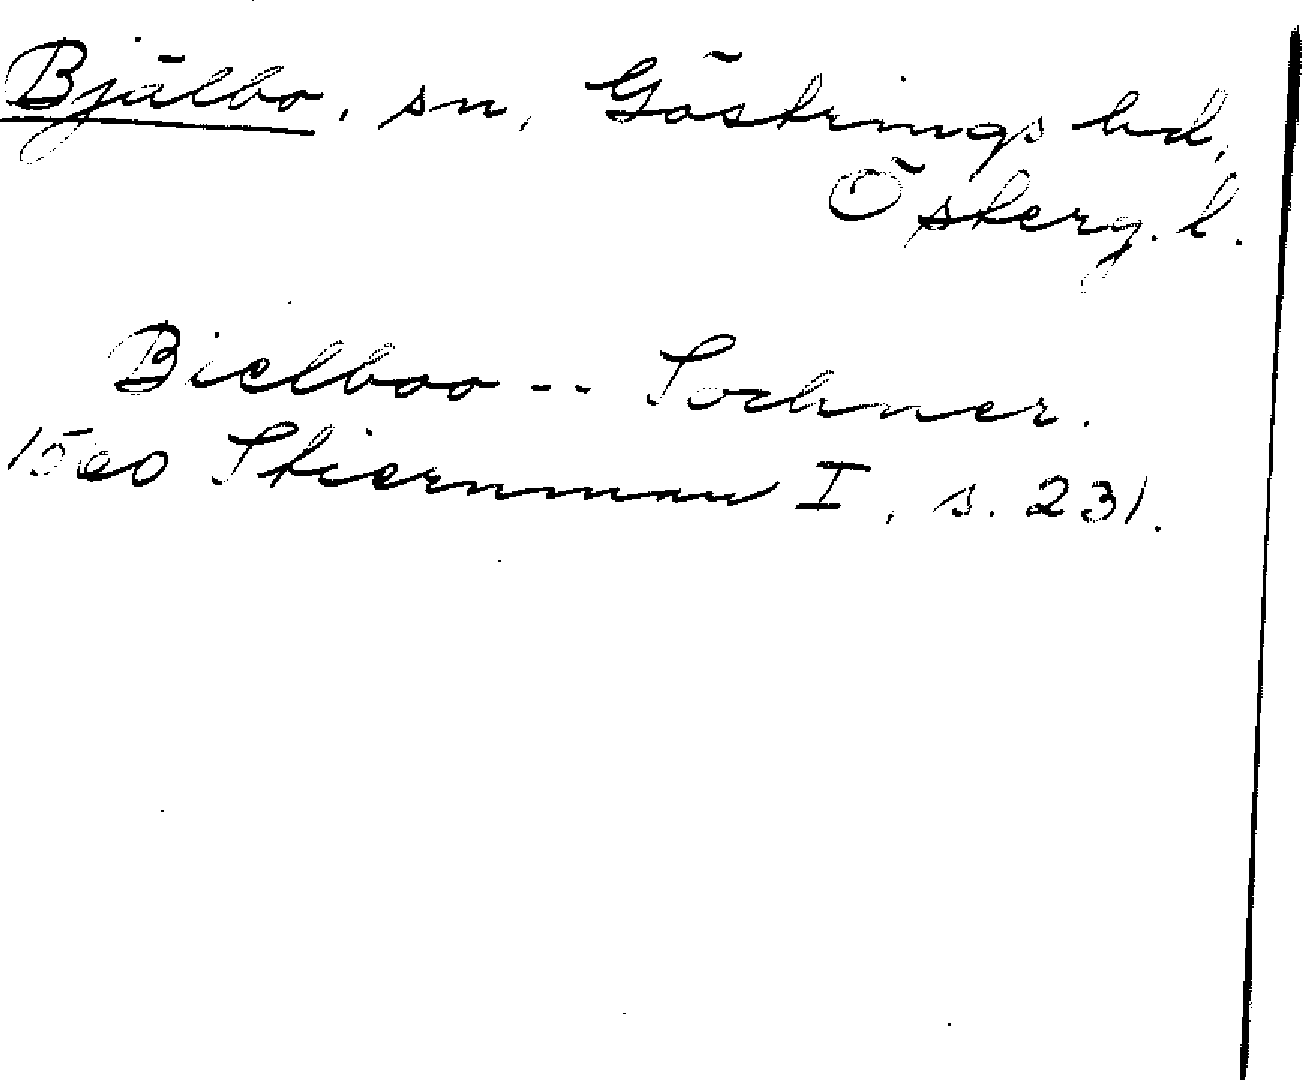 Bjälbo, sn, Göstrings hd,
Österg. l.
Bielboo -- Sochner.
1560 Stiernman I, s. 231.